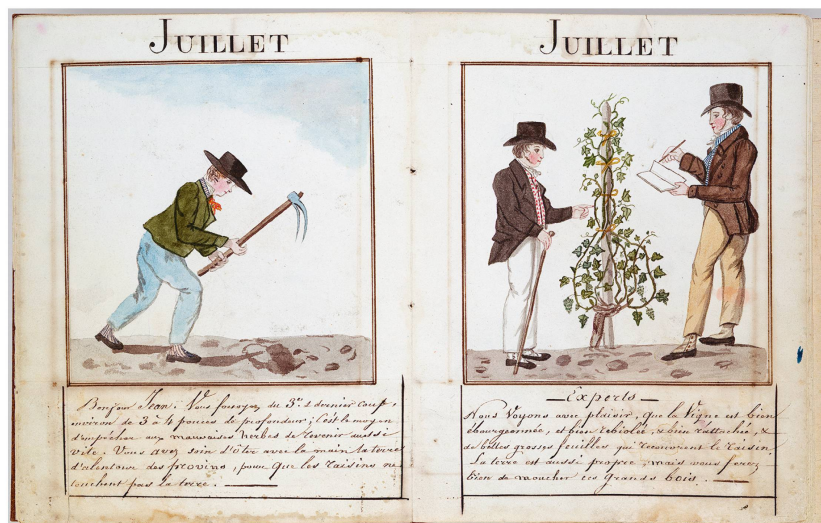 JUILLET
Bonjour Jean. Vous fossoyez du 3e. & dernier coup,
environ de 3 à 4 pouces de profondeur; c'est le moyen
d'empêcher aux mauvaises herbes de revenir aussi
vite. Vous avez soin d'ôter avec la main la terre
d'alentour des provins, pour que les raisins ne
touchent pas la terre.
JUILLET
— Experts —
Nous Voyons avec plaisir, que la Vigne est bien
ébourgeonnée, et bien rebiolée, & bien rattachée, &
de belles grosses feuilles qui recouvrent le raisin.
La terre est aussi propre, mais vous ferez
bien de moucher ces grands bois.